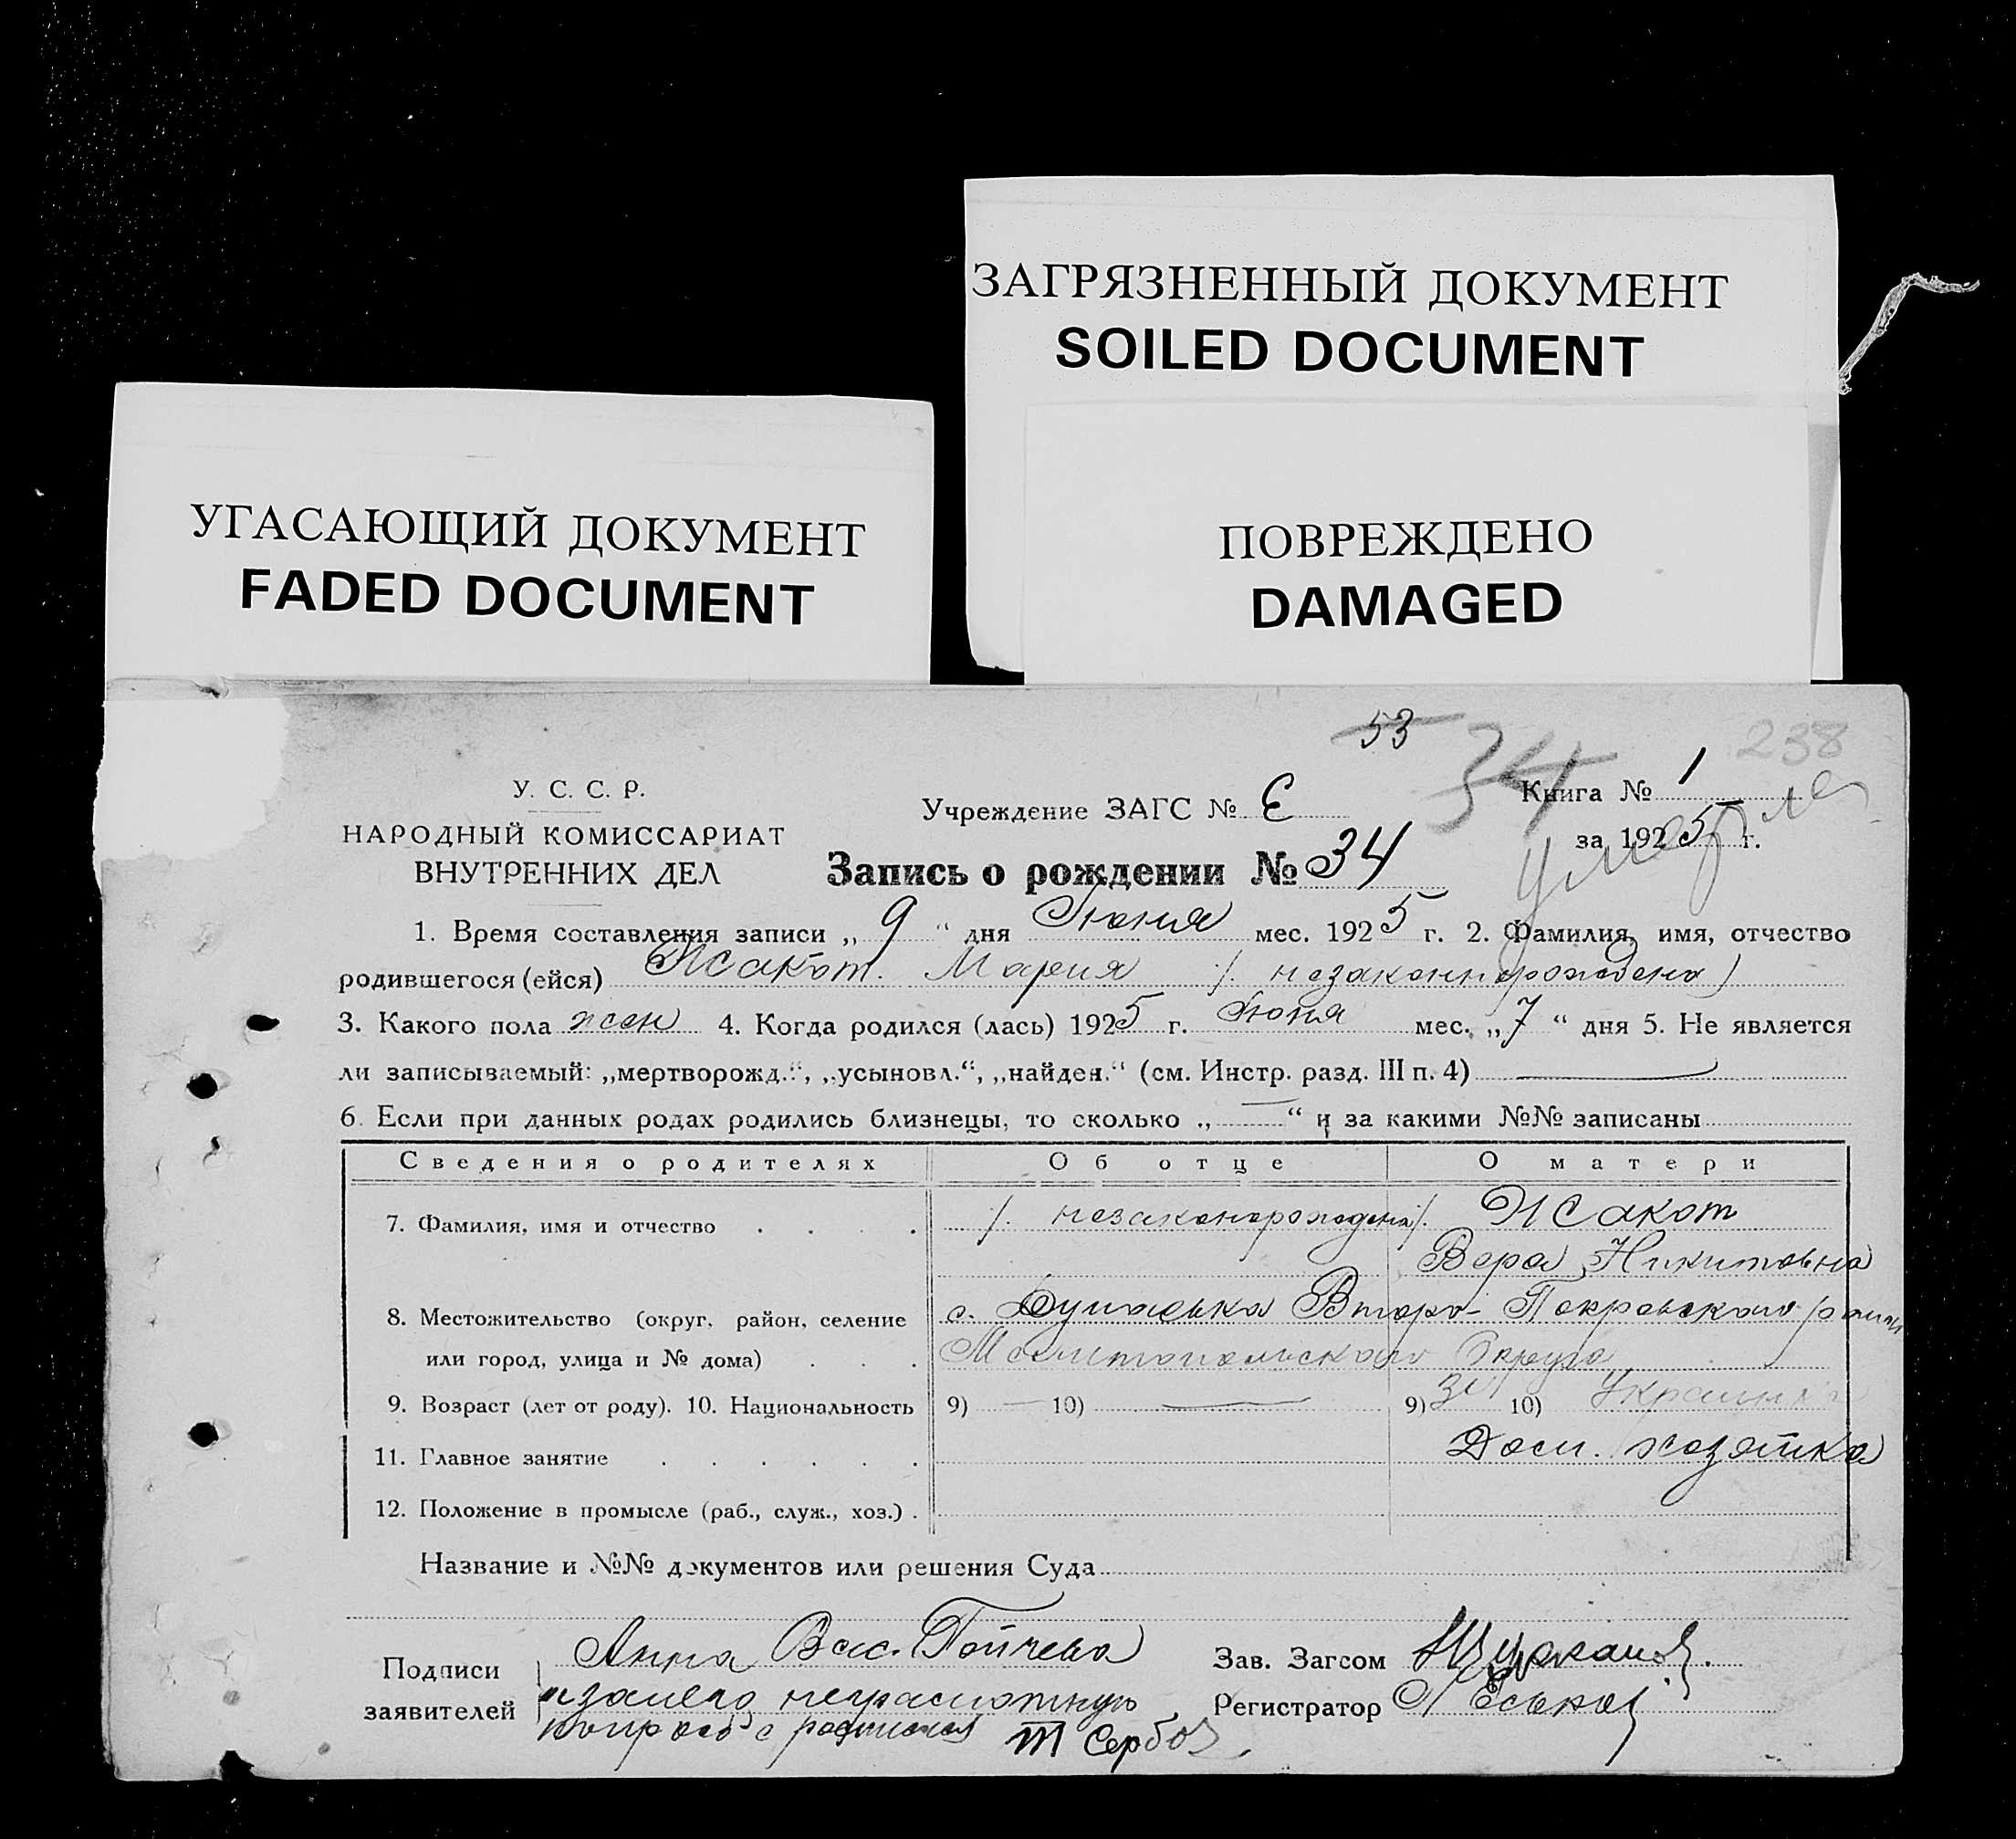 ЗАГРЯЗНЕННЫЙ ДОКУМЕНТ
SOILED DOCUMENT
УГАСАЮЩИЙ ДОКУМЕНТ
FADED DOCUMENT
ПОВРЕЖДЕНО
DAMAGED
53 34 238
У. С. С. Р.
НАРОДНЫЙ КОМИССАРИАТ
ВНУТРЕННИХ ДЕЛ
Учреждение ЗАГС № Є
Книга № 1
за 1925 г.
умерла
Запись о рождении № 34
1. Время составления записи „ 9 “ дня Июня мес. 1925 г. 2. Фамилия, имя, отчество
родившегося (ейся) Исакот. Мария /. незаконнорождена)
3. Какого пола жен 4. Когда родился (лась) 1925 г. Июня мес. „ 7 “ дня 5. Не является
ли записываемый: „мертворожд.“, „усыновл.“, „найден.“ (см. Инстр. разд. III п. 4)
6. Если при данных родах родились близнецы, то сколько „ — “ и за какими №№ записаны
Сведения о родителях Об отце О матери
7. Фамилия, имя и отчество . . . . /. незаконорождена/. Исакот
Вера Никитовна
8. Местожительство (округ, район, селение с. Второ-Покровского района
или город, улица и № дома) . . . Мелитопольского Округа
9. Возраст (лет от роду). 10. Национальность 9) — 10) — 9) 10) Украин
11. Главное занятие . . . . . . Дом. хозяйка
12. Положение в промысле (раб., служ., хоз.) .
Название и №№ документов или решения Суда
Подписи Анна Вас. Зав. Загсом
заявителей а за нее неграмотную Регистратор
расписался Сербов